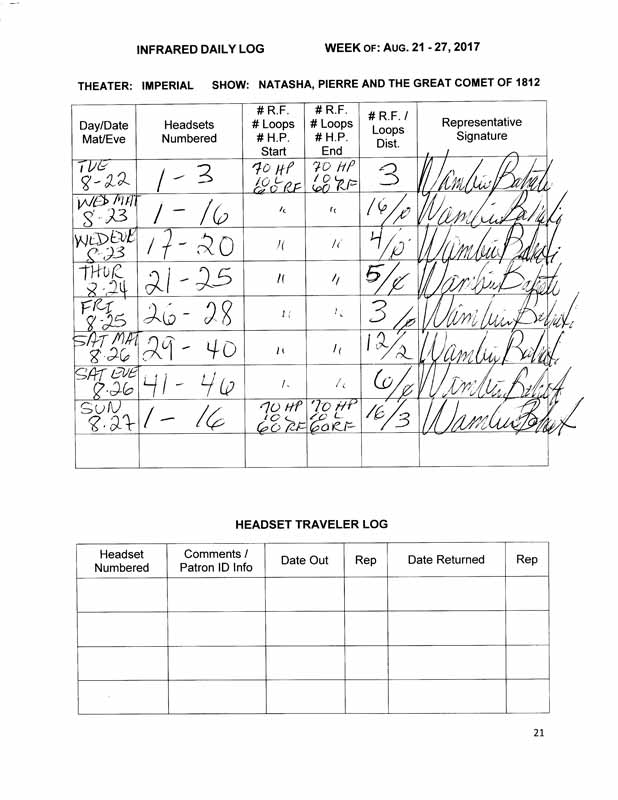 INFRARED DAILY LOG WEEK OF: AUG. 21 - 27, 2017
THEATER: IMPERIAL SHOW: NATASHA, PIERRE AND THE GREAT COMET OF 1812
Day/Date Mat/Eve Headsets Numbered # R.F. # Loops # H.P. Start # R.F. # Loops # H.P. End # R.F. / Loops Dist. Representative Signature
TUE 8-22 1 - 3 70 HP 10 L 60 RF 70 HP 10 L 60 RF 3
WED MAT 8-23 1 - 16 " " 16/0
WED EVE 8-23 17 - 20 " " 4/0
THUR 8-24 21 - 25 " " 5/0
FRI 8-25 26 - 28 " " 3/0
SAT MAT 8-26 29 - 40 " " 12/2
SAT EVE 8-26 41 - 46 " " 6/0
SUN 8-27 1 - 16 70 HP 10 L 60 RF 70 HP 10 L 60 RF 16/3
HEADSET TRAVELER LOG
Headset Numbered Comments / Patron ID Info Date Out Rep Date Returned Rep
21